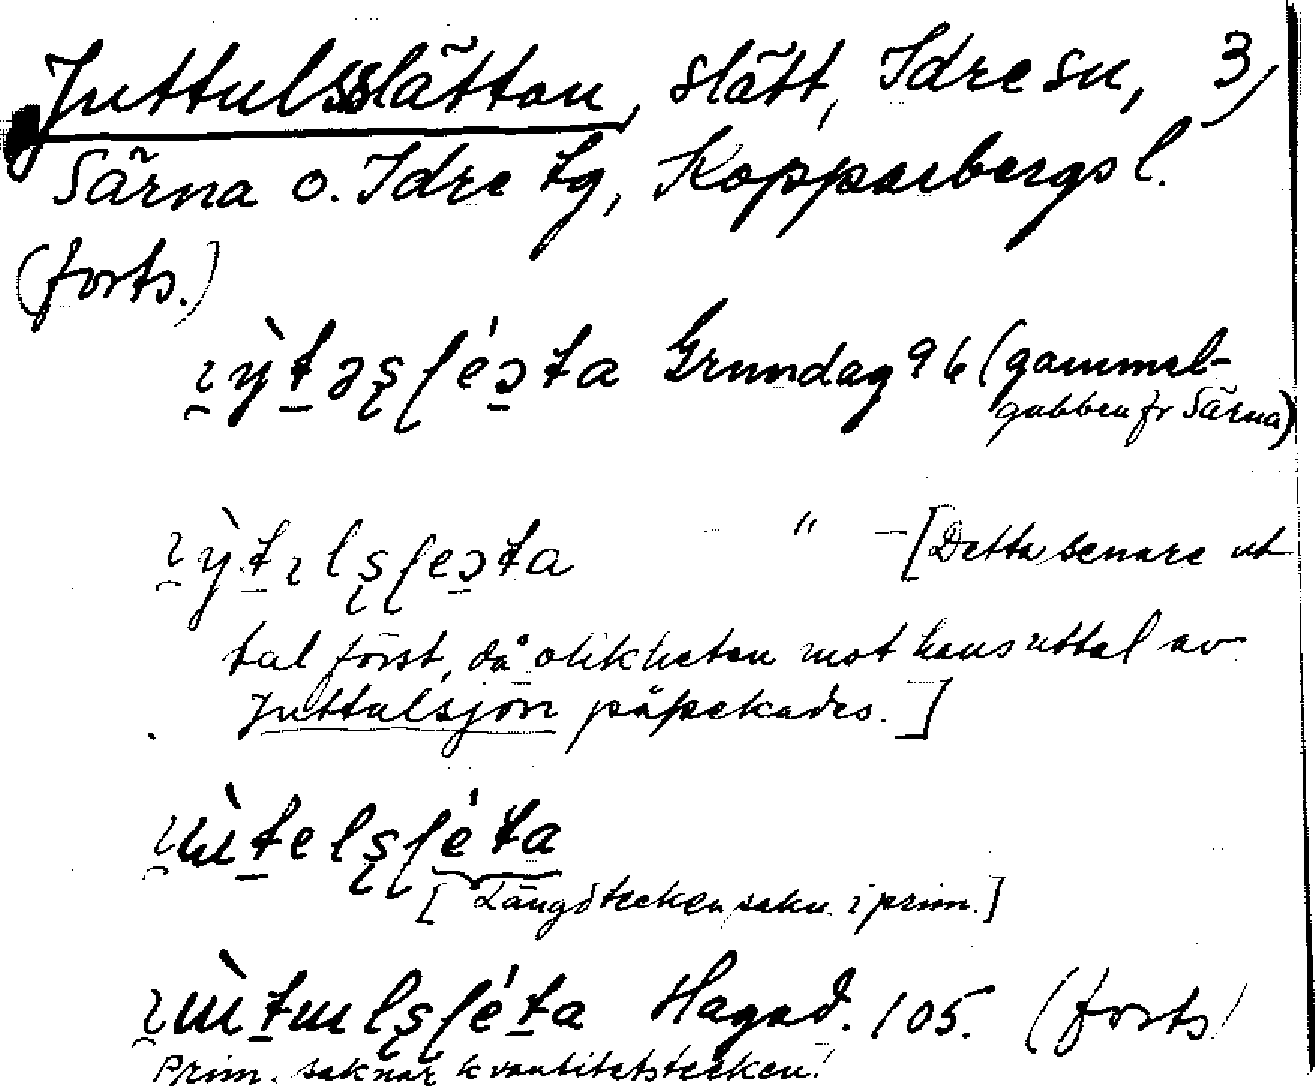 Juttulsslätten, slätt, Idre sn, 3)
Särna o. Idre tg, Kopparbergs l.
(forts.)
Grundag 96 (gammel-
gubben fr Särna)
" – [Detta senare ut
tal först, då olikheten mot hans uttal av
Juttulsjön påpekades.]
[Längdtecken sakn. i prim.]
Hagad. 105. (forts.)
Prim. saknar kvantitetstecken!